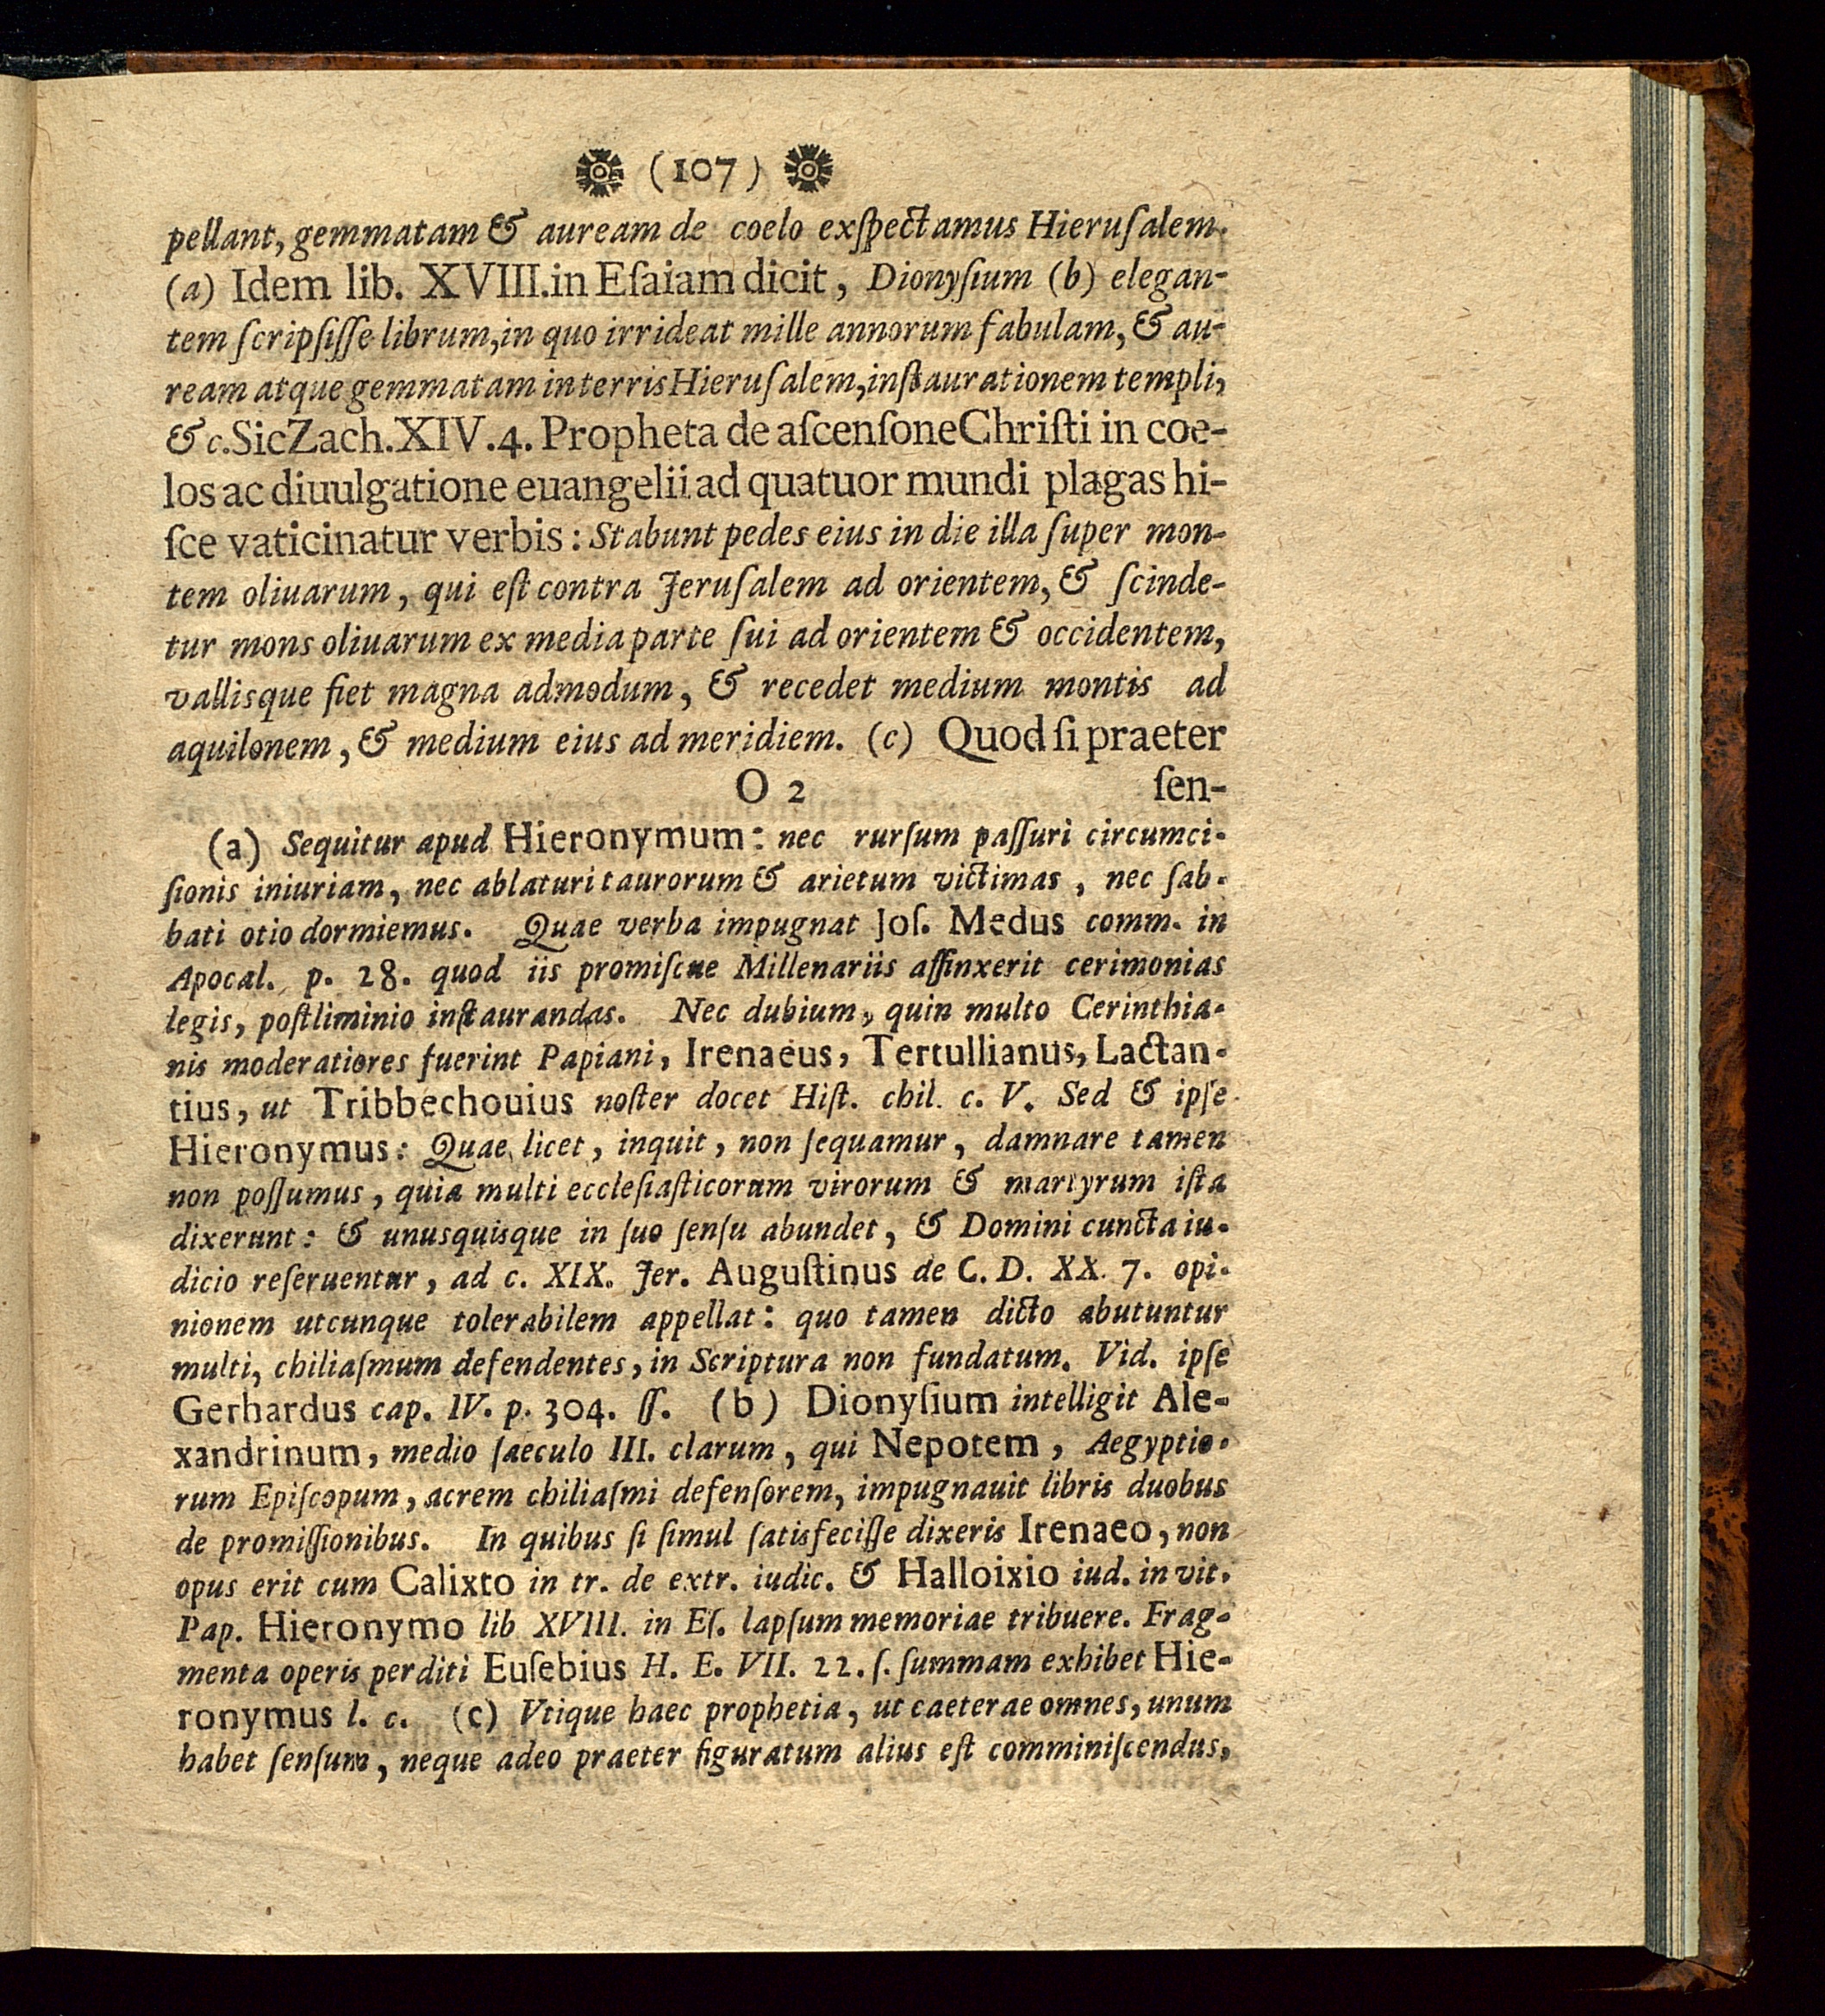 (107)
pellant, gemmatam & auream de coelo exſpectamus Hieruſalem.
(a) Idem lib. XVIII. in Eſaiam dicit, Dionyſium (b) elegan-
tem ſcripſiſſe librum, in quo irrideat mille annorum fabulam, & au-
ream atque gemmatam in terris Hieruſalem, inſtaurationem templi,
& c. Sic Zach. XIV. 4. Propheta de aſcenſone Chriſti in coe-
los ac diuulgatione euangelii ad quatuor mundi plagas hi-
ſce vaticinatur verbis: Stabunt pedes eius in die illa ſuper mon-
tem oliuarum, qui eſt contra Jeruſalem ad orientem, & ſcinde-
tur mons oliuarum ex media parte ſui ad orientem & occidentem,
vallisque fiet magna admodum, & recedet medium montis ad
aquilonem, & medium eius ad meridiem. (c) Quod ſi praeter
O 2 ſen-
(a) Sequitur apud Hieronymum: nec rurſum paſſuri circumci-
ſionis iniuriam, nec ablaturi taurorum & arietum victimas, nec ſab-
bati otio dormiemus. Quae verba impugnat Joſ. Medus comm. in
Apocal. p. 28. quod iis promiſcue Millenariis affinxerit cerimonias
legis, poſtliminio inſtaurandas. Nec dubium, quin multo Cerinthia-
nis moderatiores fuerint Papiani, Irenaeus, Tertullianus, Lactan-
tius, ut Tribbechouius noſter docet Hiſt. chil. c. V. Sed & ipſe
Hieronymus: Quae licet, inquit, non ſequamur, damnare tamen
non poſſumus, quia multi eccleſiaſticorum virorum & martyrum iſta
dixerunt: & unusquisque in ſuo ſenſu abundet, & Domini cuncta iu-
dicio reſeruentur, ad c. XIX. Jer. Auguſtinus de C. D. XX. 7. opi-
nionem utcunque tolerabilem appellat: quo tamen dicto abutuntur
multi, chiliaſmum defendentes, in Scriptura non fundatum. Vid. ipſe
Gerhardus cap. IV. p. 304. ſſ. (b) Dionyſium intelligit Ale-
xandrinum, medio ſaeculo III. clarum, qui Nepotem, Aegyptio-
rum Epiſcopum, acrem chiliaſmi defenſorem, impugnauit libris duobus
de promiſſionibus. In quibus ſi ſimul ſatisfeciſſe dixeris Irenaeo, non
opus erit cum Calixto in tr. de extr. iudic. & Halloixio iud. in vit.
Pap. Hieronymo lib XVIII. in Eſ. lapſum memoriae tribuere. Frag-
menta operis perditi Euſebius H. E. VII. 22. ſ. ſummam exhibet Hie-
ronymus l. c. (c) Vtique haec prophetia, ut caeterae omnes, unum
habet ſenſum, neque adeo praeter figuratum alius eſt comminiſcendus,